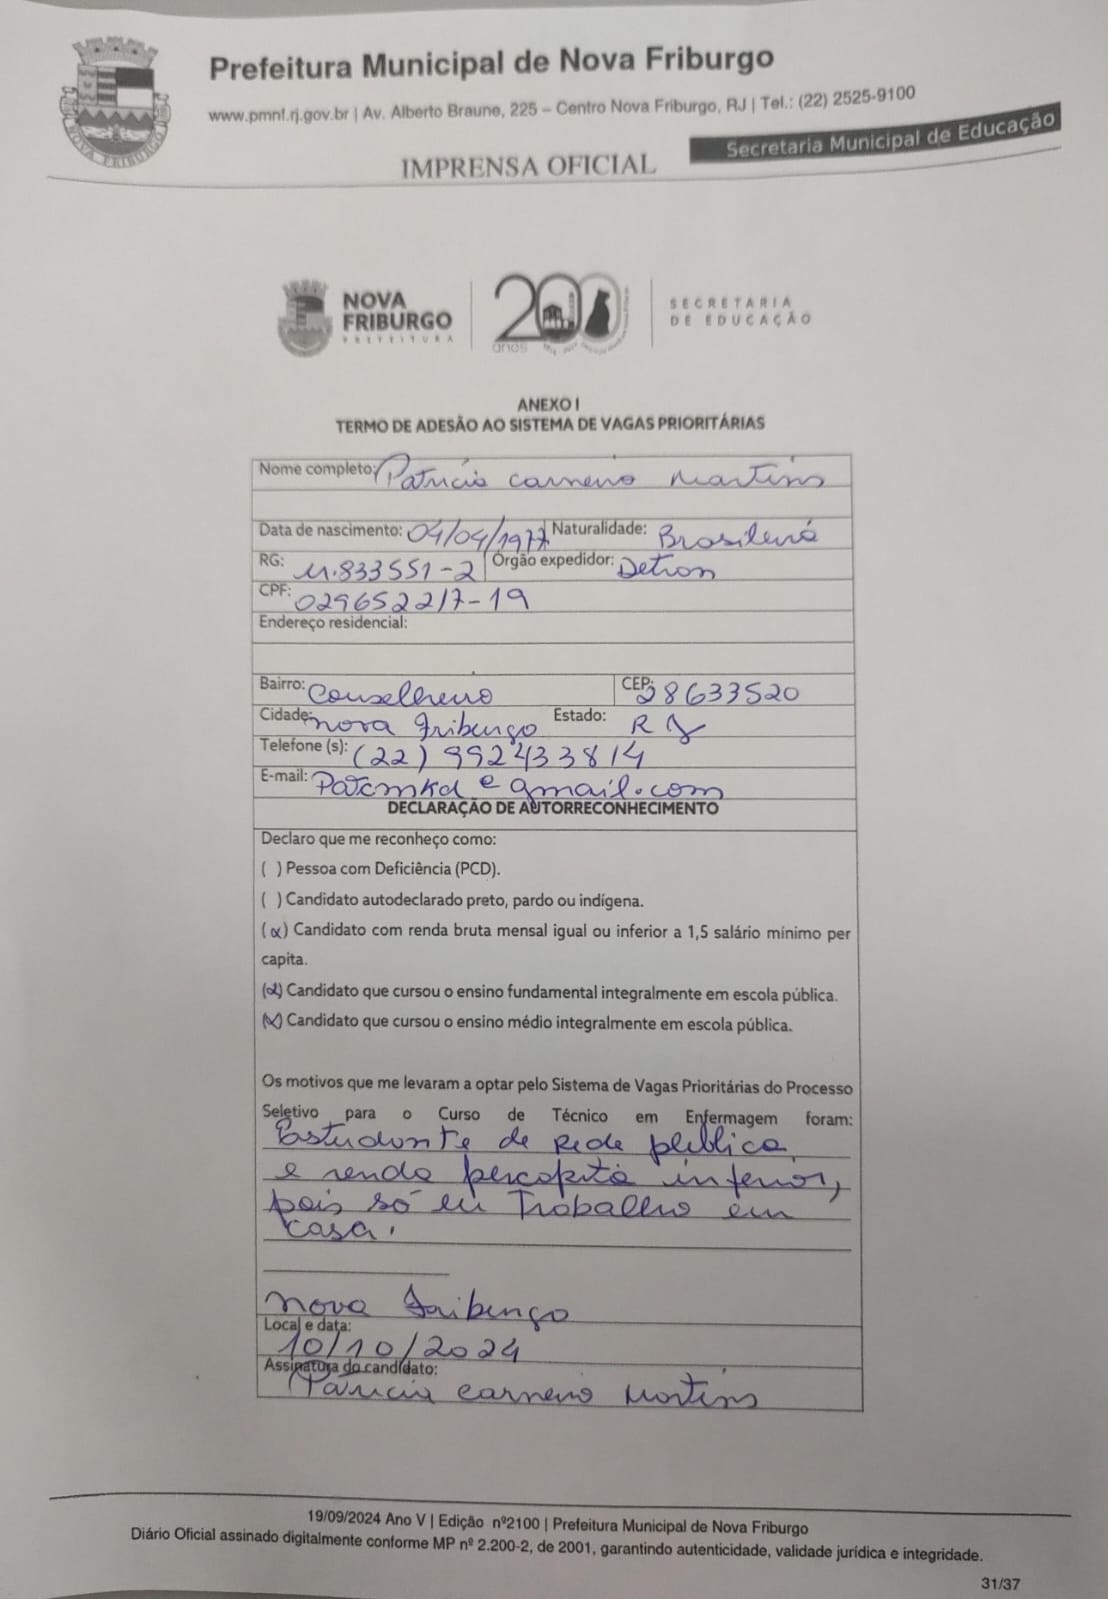 Prefeitura Municipal de Nova Friburgo
www.pmnf.rj.gov.br | Av. Alberto Braune, 225 – Centro Nova Friburgo, RJ | Tel.: (22) 2525-9100
Secretaria Municipal de Educação
IMPRENSA OFICIAL
NOVA FRIBURGO
PREFEITURA
200
anos
SECRETARIA
DE EDUCAÇÃO
ANEXO I
TERMO DE ADESÃO AO SISTEMA DE VAGAS PRIORITÁRIAS
Nome completo: Patricia Carneiro Martins
Data de nascimento: 04/04/1977 Naturalidade: Brasileira
RG: 11.833551-2 Órgão expedidor: Detran
CPF: 029652217-19
Endereço residencial:
Bairro: Conselheiro CEP: 28633520
Cidade: Nova Friburgo Estado: RJ
Telefone (s): (22) 992433814
E-mail: Patcmkd@gmail.com
DECLARAÇÃO DE AUTORRECONHECIMENTO
Declaro que me reconheço como:
( ) Pessoa com Deficiência (PCD).
( ) Candidato autodeclarado preto, pardo ou indígena.
(x) Candidato com renda bruta mensal igual ou inferior a 1,5 salário mínimo per
capita.
(x) Candidato que cursou o ensino fundamental integralmente em escola pública.
(x) Candidato que cursou o ensino médio integralmente em escola pública.
Os motivos que me levaram a optar pelo Sistema de Vagas Prioritárias do Processo
Seletivo para o Curso de Técnico em Enfermagem foram:
Estudante de rede pública
e renda percapita inferior,
pois só eu Trabalho em
casa.
Nova Friburgo
Local e data:
10/10/2024
Assinatura do candidato:
Patricia Carneiro Martins
19/09/2024 Ano V | Edição nº2100 | Prefeitura Municipal de Nova Friburgo
Diário Oficial assinado digitalmente conforme MP nº 2.200-2, de 2001, garantindo autenticidade, validade jurídica e integridade.
31/37